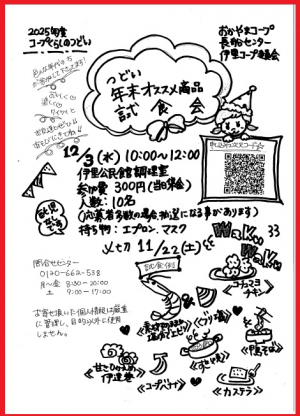 2025年度
コープくらしのつどい
おかやまコープ
長船センター
伊里コープ委員会
つどい
年末オススメ商品
試食会
12/3(水)10:00~12:00
伊里公民館調理室
参加費 300円(当日集金)
人数:10名
(応募者多数の場合、抽選になる事があります)
持ち物:エプロン、マスク
〆切 11/22(土)
託児
なし
です
WaKu
WaKu
問合せセンター
0120-662-538
月~金 8:30-20:00
土 9:00-17:00
お寄せ頂いた個人情報は厳重
に管理し、目的以外に使用
しません。
試食例
チキン
ぶり
甘さひかえめ
伊達巻
コープバナナ
カステラ